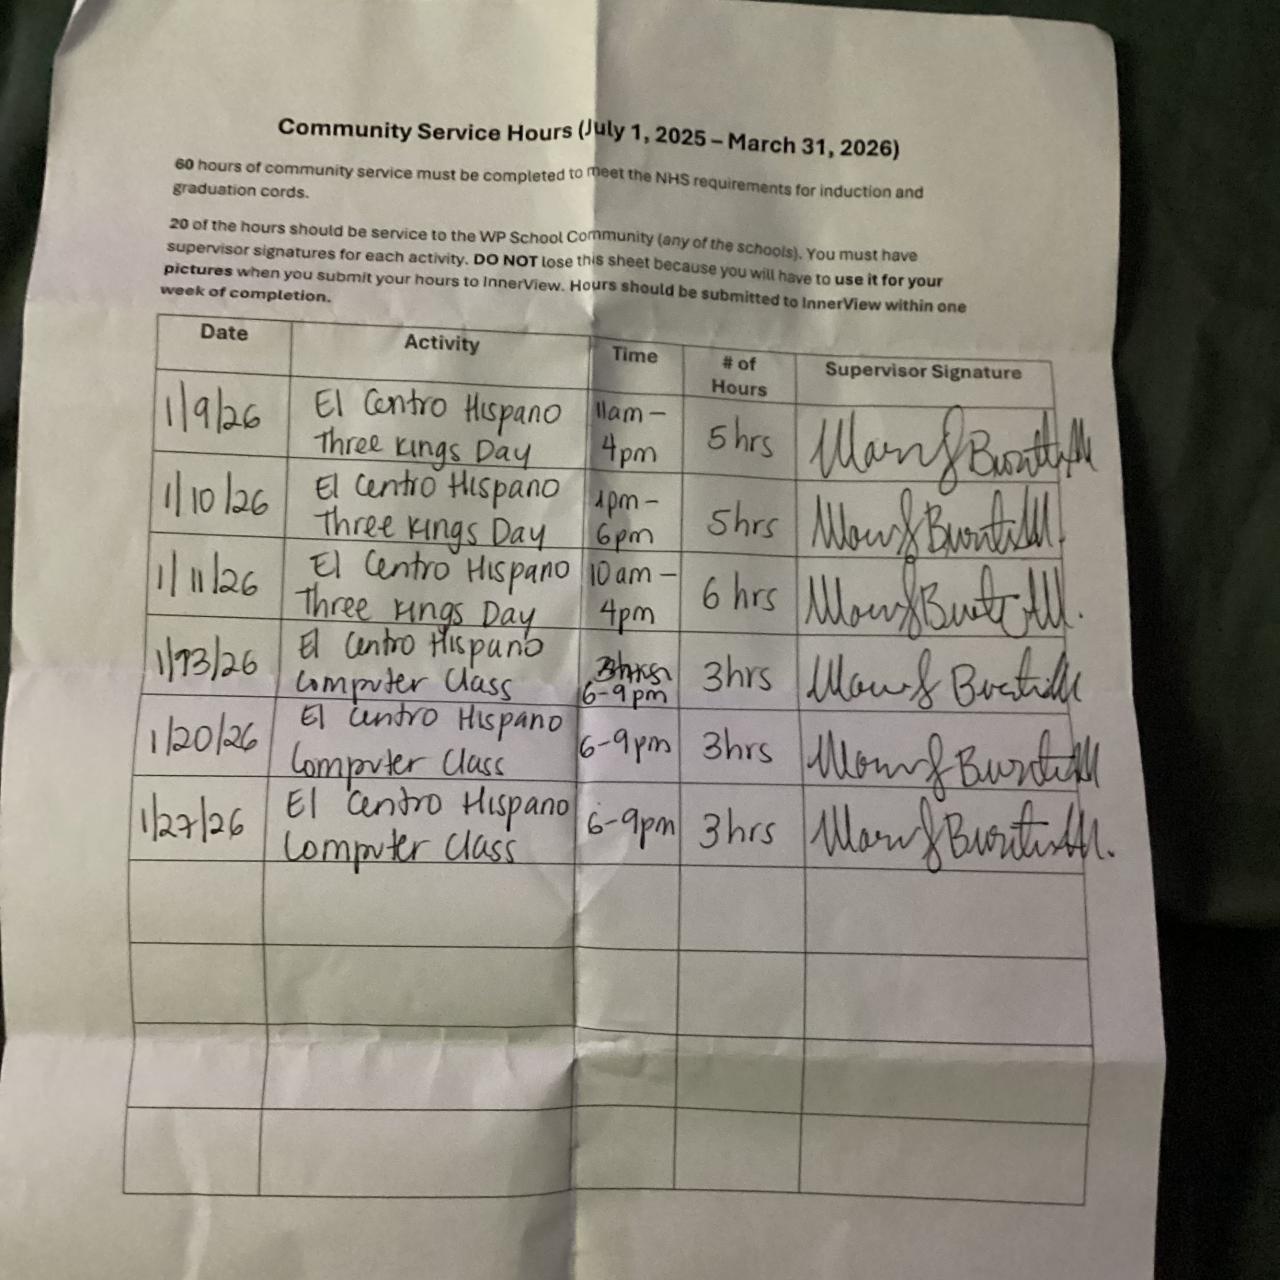 Community Service Hours (July 1, 2025 – March 31, 2026)
60 hours of community service must be completed to meet the NHS requirements for induction and
graduation cords.
20 of the hours should be service to the WP School Community (any of the schools). You must have
supervisor signatures for each activity. DO NOT lose this sheet because you will have to use it for your
pictures when you submit your hours to InnerView. Hours should be submitted to InnerView within one
week of completion.
Date Activity Time # of Hours Supervisor Signature
1/9/26 El Centro Hispano 11am –
Three Kings Day 4pm 5 hrs
1/10/26 El Centro Hispano 1pm –
Three Kings Day 6pm 5hrs
1/11/26 El Centro Hispano 10am –
Three Kings Day 4pm 6 hrs
El Centro Hispano
Computer Class 6-9pm 3hrs
1/20/26 El Centro Hispano
Computer Class 6-9pm 3hrs
1/27/26 El Centro Hispano
Computer Class 6-9pm 3hrs